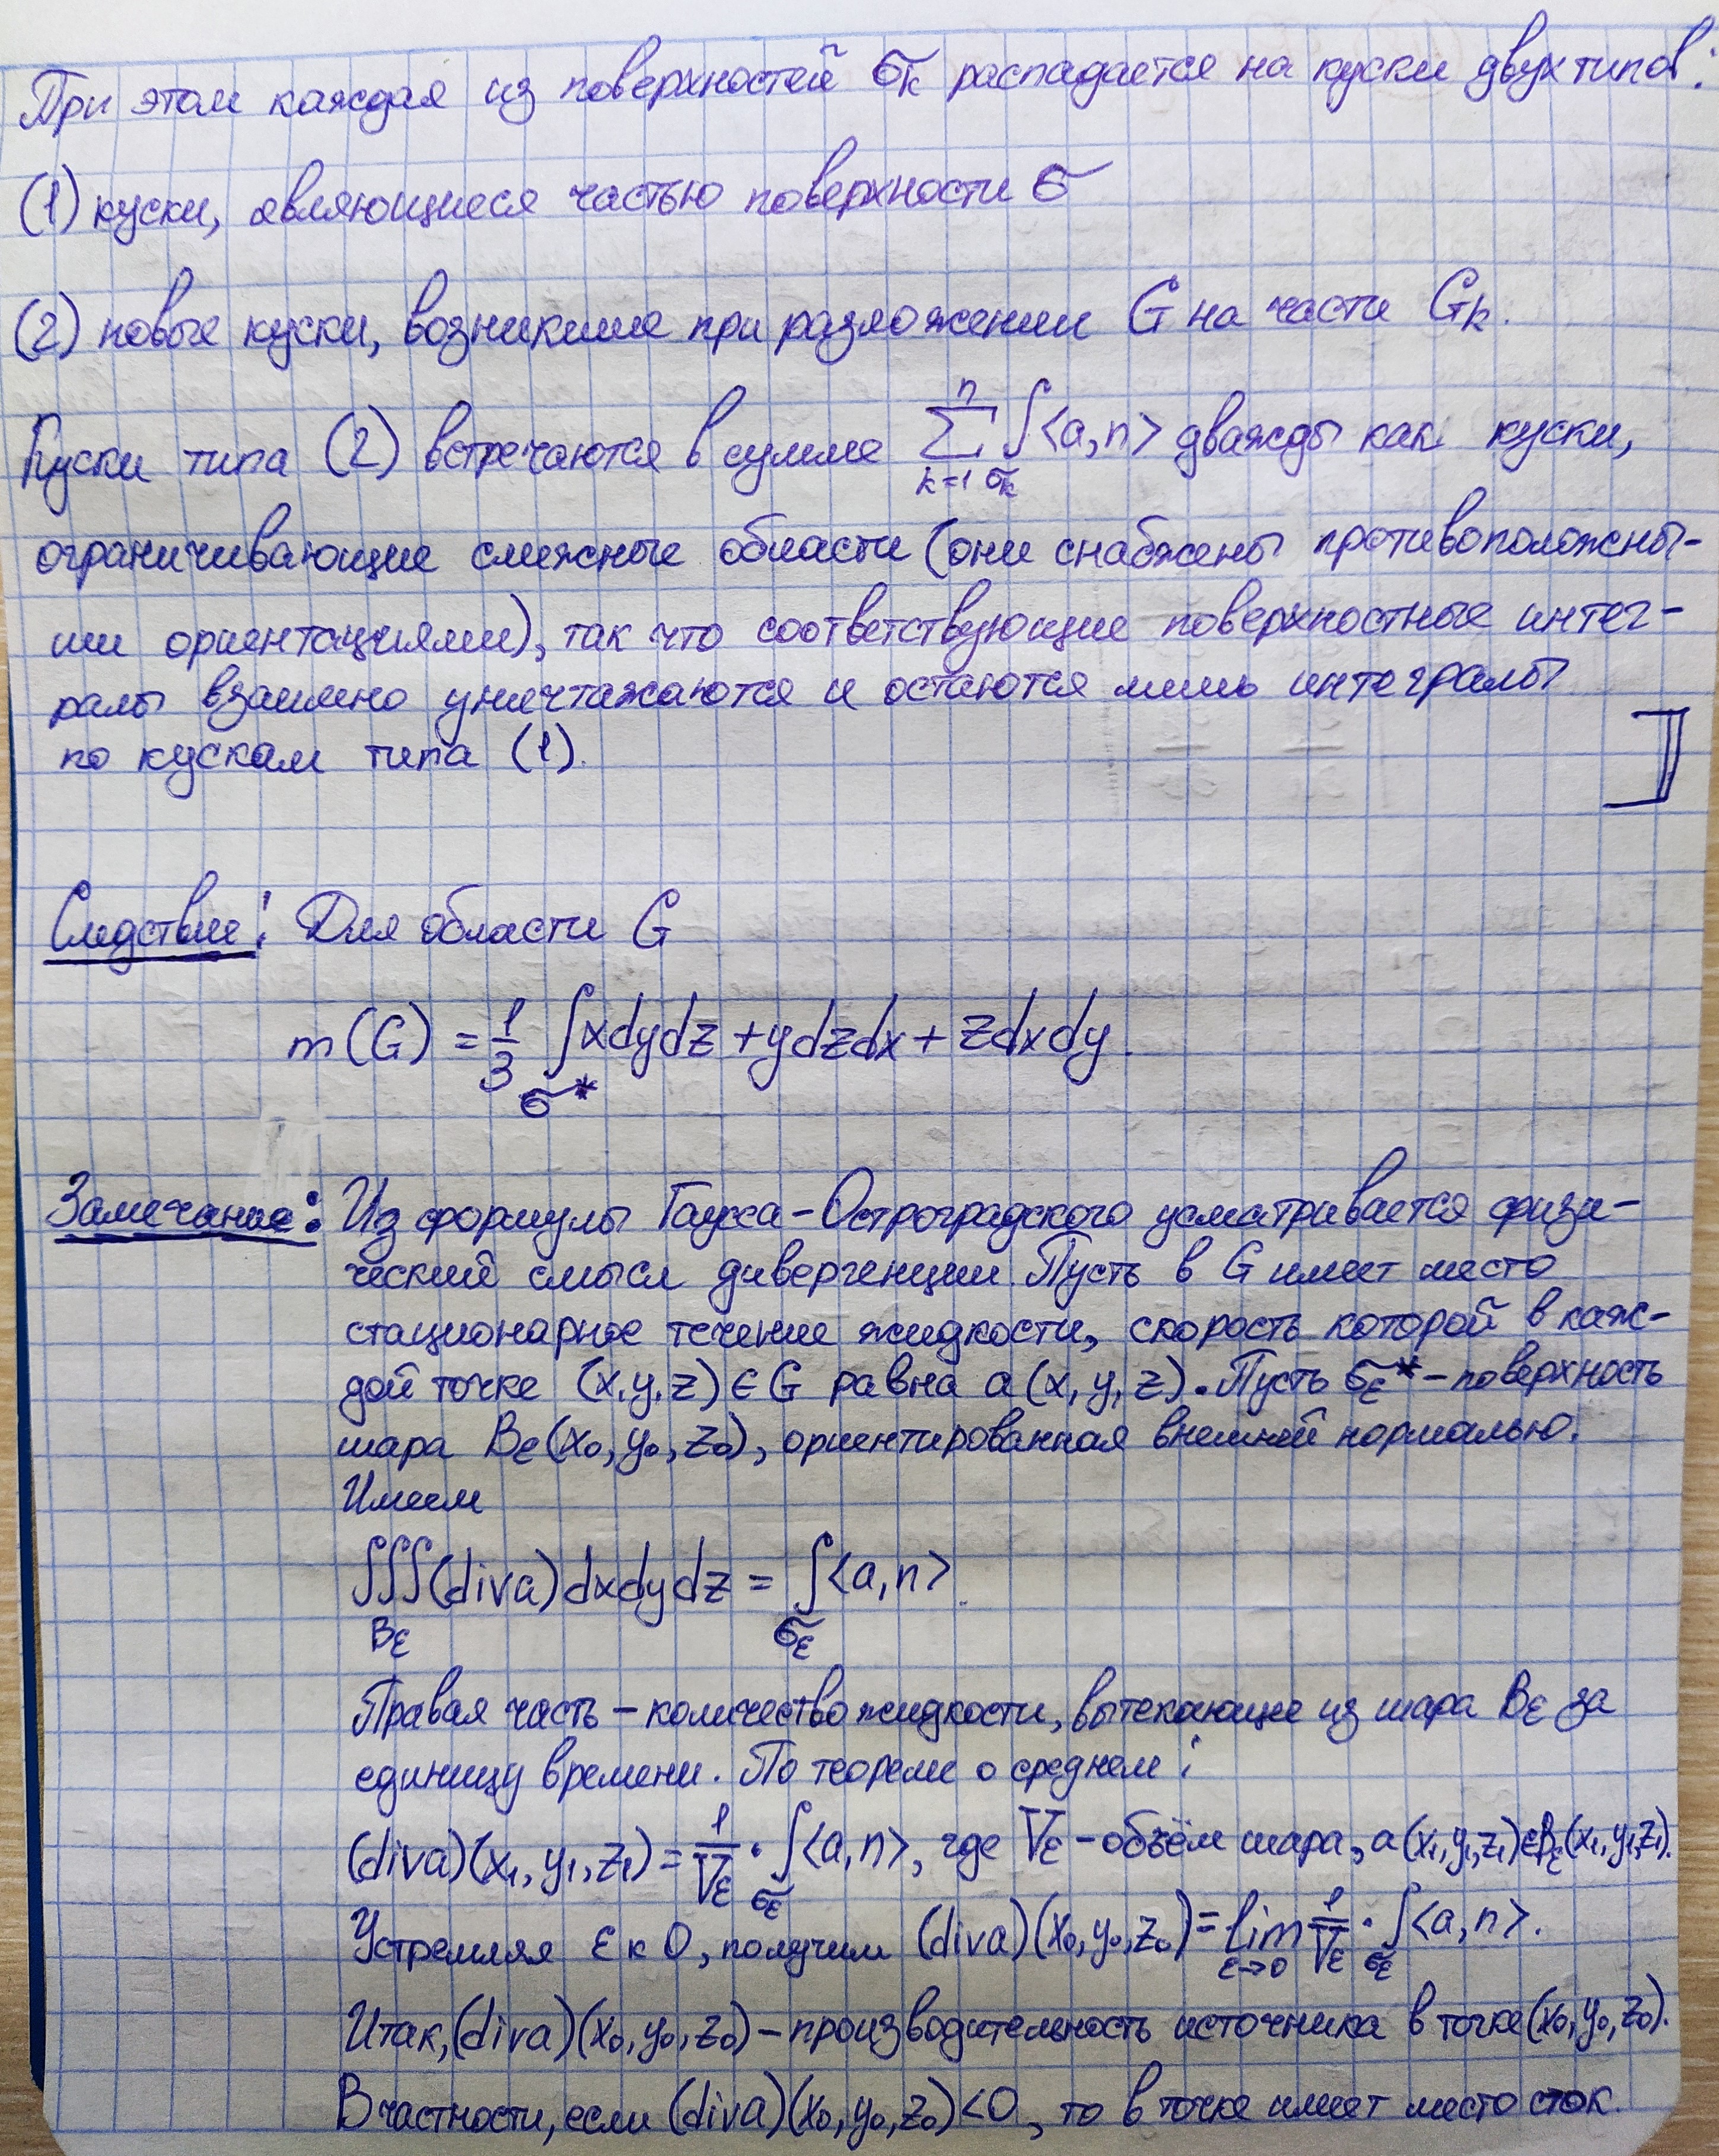 При этом каждая из поверхностей σₖ распадается на куски двух типов:
(1) куски, являющиеся частью поверхности σ
(2) новые куски, возникшие при разложении G на части Gₖ.
Куски типа (2) встречаются в сумме ∑_{k=1}^{n} ∫_{σₖ} <a,n> дважды как куски,
ограничивающие смежные области (они снабжены противоположны-
ми ориентациями), так что соответствующие поверхностные интег-
ралы взаимно уничтажаются и остаются лишь интегралы
по кускам типа (1).
Следствие: Для области G
m(G) = 1/3 ∫_{σ*} xdydz + ydzdx + zdxdy.
Замечание: Из формулы Гаусса-Остроградского усматривается физи-
ческий смысл дивергенции. Пусть в G имеет место
стационарное течение жидкости, скорость которой в каж-
дой точке (x,y,z)∈G равна a(x,y,z). Пусть σ_ε* - поверхность
шара B_ε(x₀,y₀,z₀), ориентированная внешней нормалью.
Имеем
∭_{B_ε} (div a) dxdydz = ∫_{σ_ε} <a,n>.
Правая часть - количество жидкости, вытекающее из шара B_ε за
единицу времени. По теореме о среднем:
(div a)(x₁,y₁,z₁) = 1/V_ε · ∫_{σ_ε} <a,n>, где V_ε - объём шара, a(x₁,y₁,z₁)∈B_ε(x₁,y₁,z₁).
Устремляя ε к 0, получим (div a)(x₀,y₀,z₀) = lim_{ε→0} 1/V_ε · ∫_{σ_ε} <a,n>.
Итак, (div a)(x₀,y₀,z₀) - производительность источника в точке (x₀,y₀,z₀).
В частности, если (div a)(x₀,y₀,z₀)<0, то в точке имеет место сток.